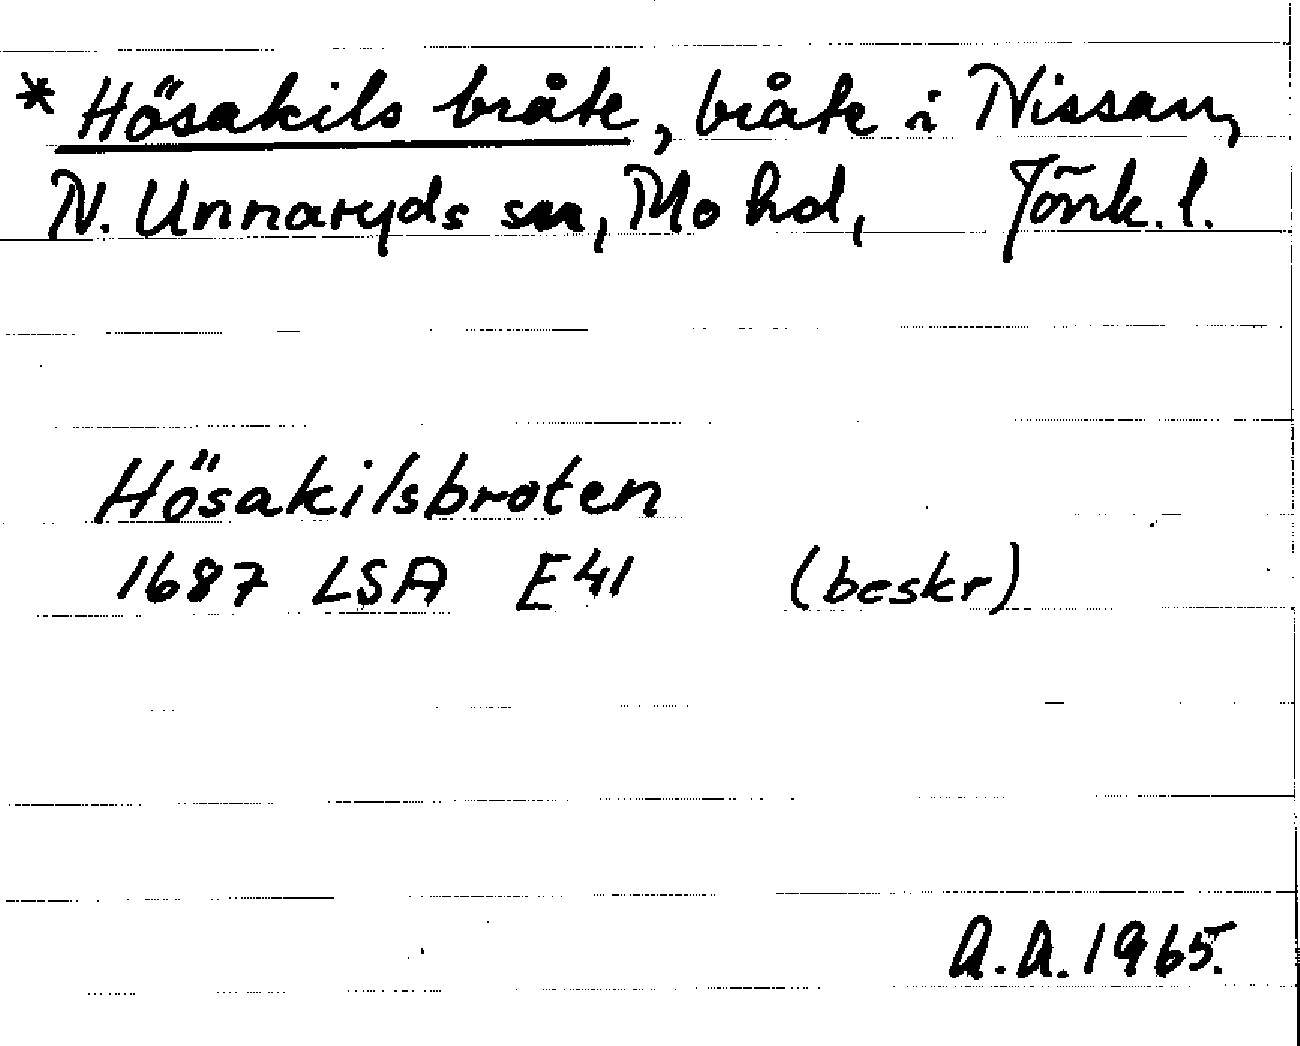 * Hösakils bråte, bråte i Nissan,
N. Unnaryds sn, Mo hd, Jönk. l.
Hösakilsbroten
1687 LSA E41 (beskr)
A.A. 1965.